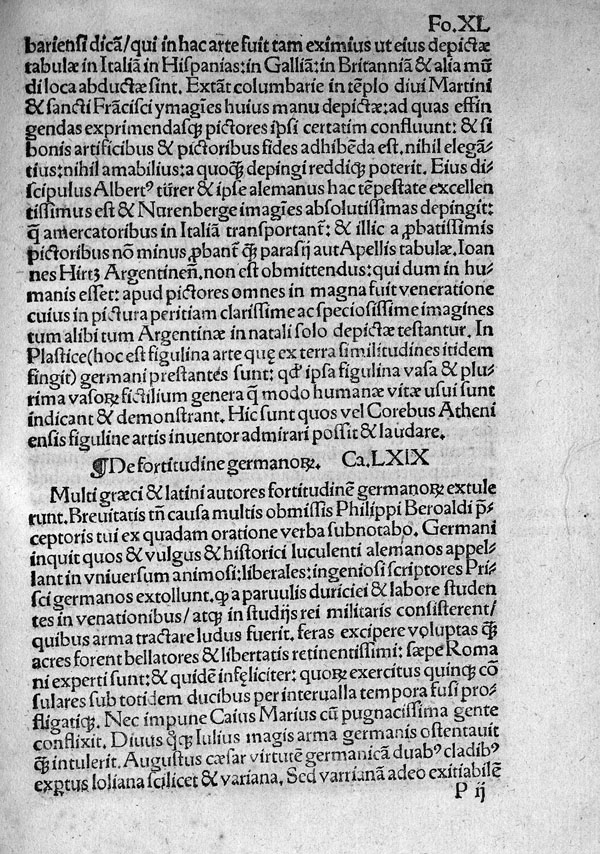 Fo.XL
bariensi dicā/qui in hac arte fuit tam eximius ut eius depictæ
tabulæ in Italiā in Hispanias:in Galliā:in Britanniā & alia mū⸗
di loca abductæ sint. Extāt columbarie in tēplo diui Martini
& sancti Frācisci ymagīes huius manu depictæ:ad quas effin⸗
gendas exprimendasqꝫ pictores ipsi certatim confluunt: & si
bonis artificibus & pictoribus fides adhibēda est.nihil elegā⸗
tius:nihil amabilius:a quoqꝫ depingi reddiqꝫ poterit. Eius di⸗
scipulus Albertꝰ türer & ipse alemanus hac tēpestate excellen
tissimus est & Nurenberge imagīes absolutissimas depingit:
q̄ amercatoribus in Italiā transportant᷑: & illic a ꝓbatissimis
pictoribus nō minus ꝓbant᷑ qꝫ parasij aut Apellis tabulæ.Ioan
nes Hirtz Argentineñ.non est obmittendus:qui dum in hu⸗
manis esset: apud pictores omnes in magna fuit veneratione
cuius in pictura peritiam clarissime ac speciosissime imagines
tum alibi tum Argentinæ in natali solo depictæ testantur. In
Plastice(hoc est figulina arte quę ex terra similitudines itidem
fingit) germani prestantes sunt: qđ ipsa figulina vasa & plu⸗
rima vasoꝝ fictilium genera q̄ modo humanæ vitæ usui sunt
indicant & demonstrant. Hic sunt quos vel Corebus Atheni
ensis figuline artis inuentor admirari possit & laudare.
¶De fortitudine germanoꝝ. Ca.LXIX
Multi græci & latini autores fortitudinē germanoꝝ extule
runt.Breuitatis tñ causa multis obmissis Philippi Beroaldi p̄⸗
ceptoris tui ex quadam oratione verba subnotabo. Germani
inquit quos & vulgus & historici luculenti alemanos appel⸗
lant in vniuersum animosi:liberales:ingeniosi scriptores Pri⸗
sci germanos extollunt.ꝙ a paruulis duriciei & labore studen
tes in venationibus/ atqꝫ in studijs rei militaris consisterent/
quibus arma tractare ludus fuerit. feras excipere voluptas qꝫ
acres forent bellatores & libertatis retinentissimi: sæpe Roma
ni experti sunt:& quidē infęliciter: quoꝝ exercitus quinqꝫ cō
sulares sub totidem ducibus per interualla tempora fusi pro⸗
fligatiqꝫ. Nec impune Caius Marius cū pugnacissima gente
conflixit. Diuus qꝫqꝫ Iulius magis arma germanis ostentauit
qꝫ intulerit. Augustus cæsar virtutē germanicā duabꝰ cladibꝰ
exꝑtus loliana scilicet & variana. Sed varrianā adeo exitiabilē
P ij